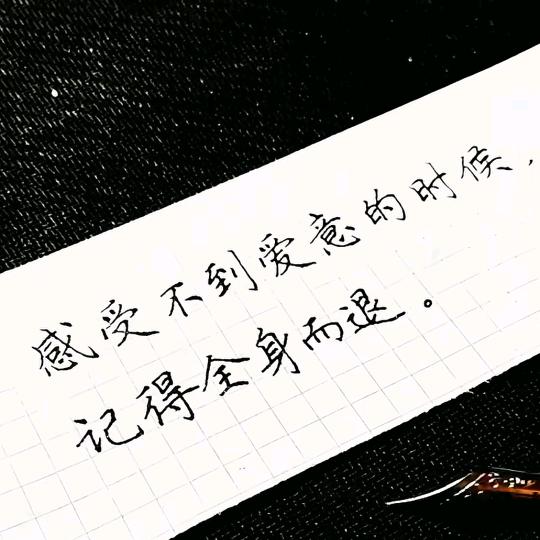 感受不到爱意的时候，
记得全身而退。